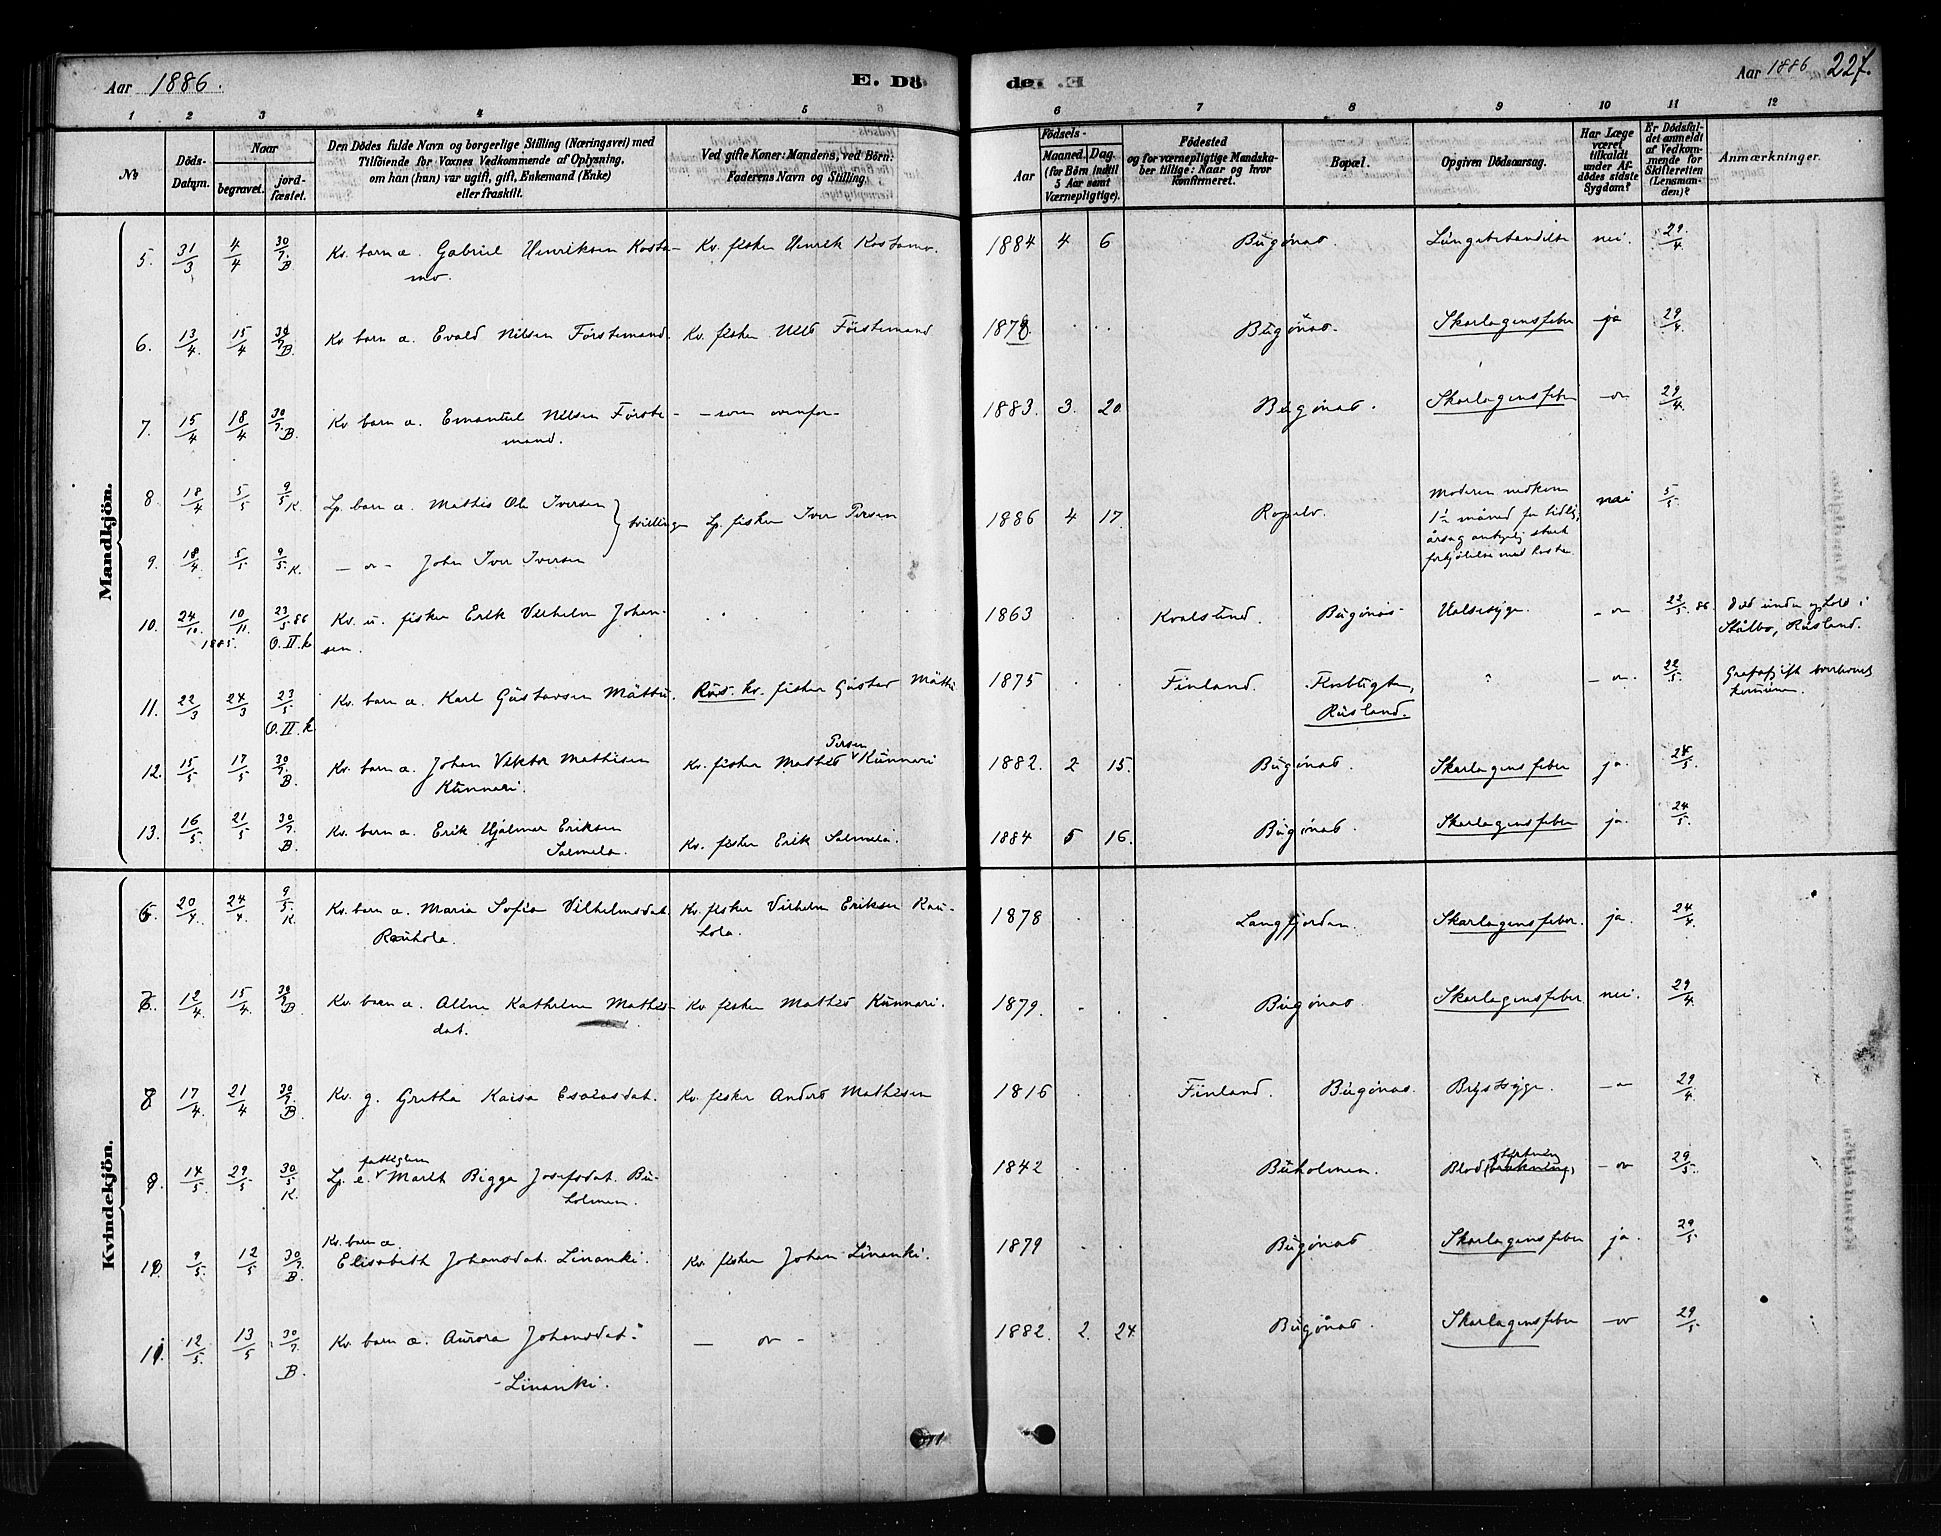 Aar 1886.
E. Dö
de.
Aar 1886
227.
1 2 3 4 5 6 7 8 9 10 11 12
No
Döds-Datum.
Naar
begravet.
jord-fæstet.
Den Dödes fulde Navn og borgerlige Stilling (Næringsvei) med
Tilföiende for Voxnes Vedkommende af Oplysning,
om han (hun) var ugift, gift, Enkemand (Enke)
eller fraskilt.
Ved gifte Koner: Mandens, ved Börn:
Faderens Navn og Stilling.
Födsels-
Aar
Maaned. Dag.
(for Börn indtil
5 Aar samt
Værnepligtige).
Födested
og for værnepligtige Mandska-
ber tillige: Naar og hvor
Konfirmeret.
Bopæl.
Opgiven Dödsaarsag.
Har Læge
været
tilkaldt
under Af-
dödes sidste
Sygdom?
Er Dödsfal-
det anmeldt
af Vedkom-
mende for
Skifteretten
(Lensman-
den)?
Anmærkninger.
Mandkjön.
5. 31/3 4/4 30/7 B Kv. barn a. Gabriel Henriksen Kosta- Kv. fisker Henrik Kostamo. 1884 4 6 Bugönæs. Lungebetændelse nei. 29/4
mo.
6. 13/4 15/4 30/7 B Kv. barn a. Evald Nilsen Förstemand. Kv. fisker Nils Förstemand 1878 . .. Bugönæs. Skarlagensfeber ja 29/4
7. 15/4 18/4 30/7 B. Kv barn a. Emanuel Nilsen Förste- — som ovenfor — 1883. 3. 20 Bugönæs. Skarlagensfeber — or 29/4
mand.
8. 18/4 5/5 9/5 K Lp. barn a. Mathis Ole Iversen } tvillinger Lp. fisker Iver Persen 1886 4 17. Ropelv. Moderen nedkom nei 5/5
1½ måned for tidlig,
stærk
forkjølelse med hoste
9. 18/4 5/5 9/5 K. — or — John Iver Iversen
10. 24/10 10/11 23/5 86 Kv. u. fisker Erik Vilhelm Johan- 1863 Kvalsund. Bugönæs Halsesyge. — or 22/5 86. Död under ophold i
1885. O.II.k sen. Stålbo, Rusland.
11. 22/3 24/3 23/5 Kv. barn a. Karl Gustavsen Mättu. Rus. kv. fisker Gustav Mättu 1875 Finland. ? — or. 22/5.
O.II k Rusland.
12. 15/5 17/5 30/7 B. Kv. barn a. Johan Viktor Mathisen Kv. fisker Mathis Persen Kunnari 1882. 2 15. Bugönæs. Skarlagensfeber ja. 24/5.
Kunnari.
13. 16/5. 21/5 30/7 B. Kv. barn a. Erik Hjalmar Eriksen Kv. fisker Erik Salmela. 1884 5 16. Bugönæs. Skarlagensfeber ja. 24/5.
Salmela.
Kvindekjön.
6 20/4 24/4 9/5 K Kv. barn a. Maria Sofia Vilhelmsdat. Kv. fisker Vilhelm Eriksen Rau- 1878 Langfjorden. Skarlagensfeber. ja. 24/4.
Rauhola. hola.
7. 12/4 15/4. 30/7 B Kv barn a. Alma Kathrina Mathis- Kv fisker Mathis Kunnari. 1879. Bugönæs Skarlagensfeber nei. 29/4
dat.
8 17/4. 21/4 30/7 B Kv. g. Gretha Kaisa Esaiasdat. Kv. fisker Anders Mathisen 1816 Finland. Bugönæs. Brystsyge. — or 29/4
9 14/5. 29/5 30/5 K. Lp. e. fattiglem Marit Bigga Josefsdat. Bu- 1842 Buholmen. Blod — or 29/5.
holmen.
10. 9/5. 12/5 30/7 B. Kv. barn a
Elisabeth Johansdat. Linanki. Kv. fisker Johan Linanki. 1879 Bugönæs Skarlagensfeber ja. 29/5
11. 12/5. 13/5 30/7 B. Kv barn a. Aurora Johansdat. — or — 1882. 2. 24 Bugönæs. Skarlagensfeber — or 29/5
Linanki.